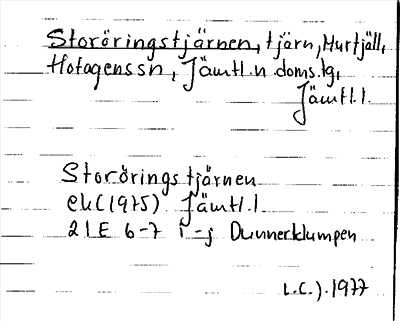 Storöringstjärnen, tjärn, Murtjäll,
Hotagens sn, Jämtl. n. doms.tg,
Jämtl. l.
Storöringstjärnen
ek (1975) Jämtl. l
21E 6-7 i-j Dunnerklumpen
1977